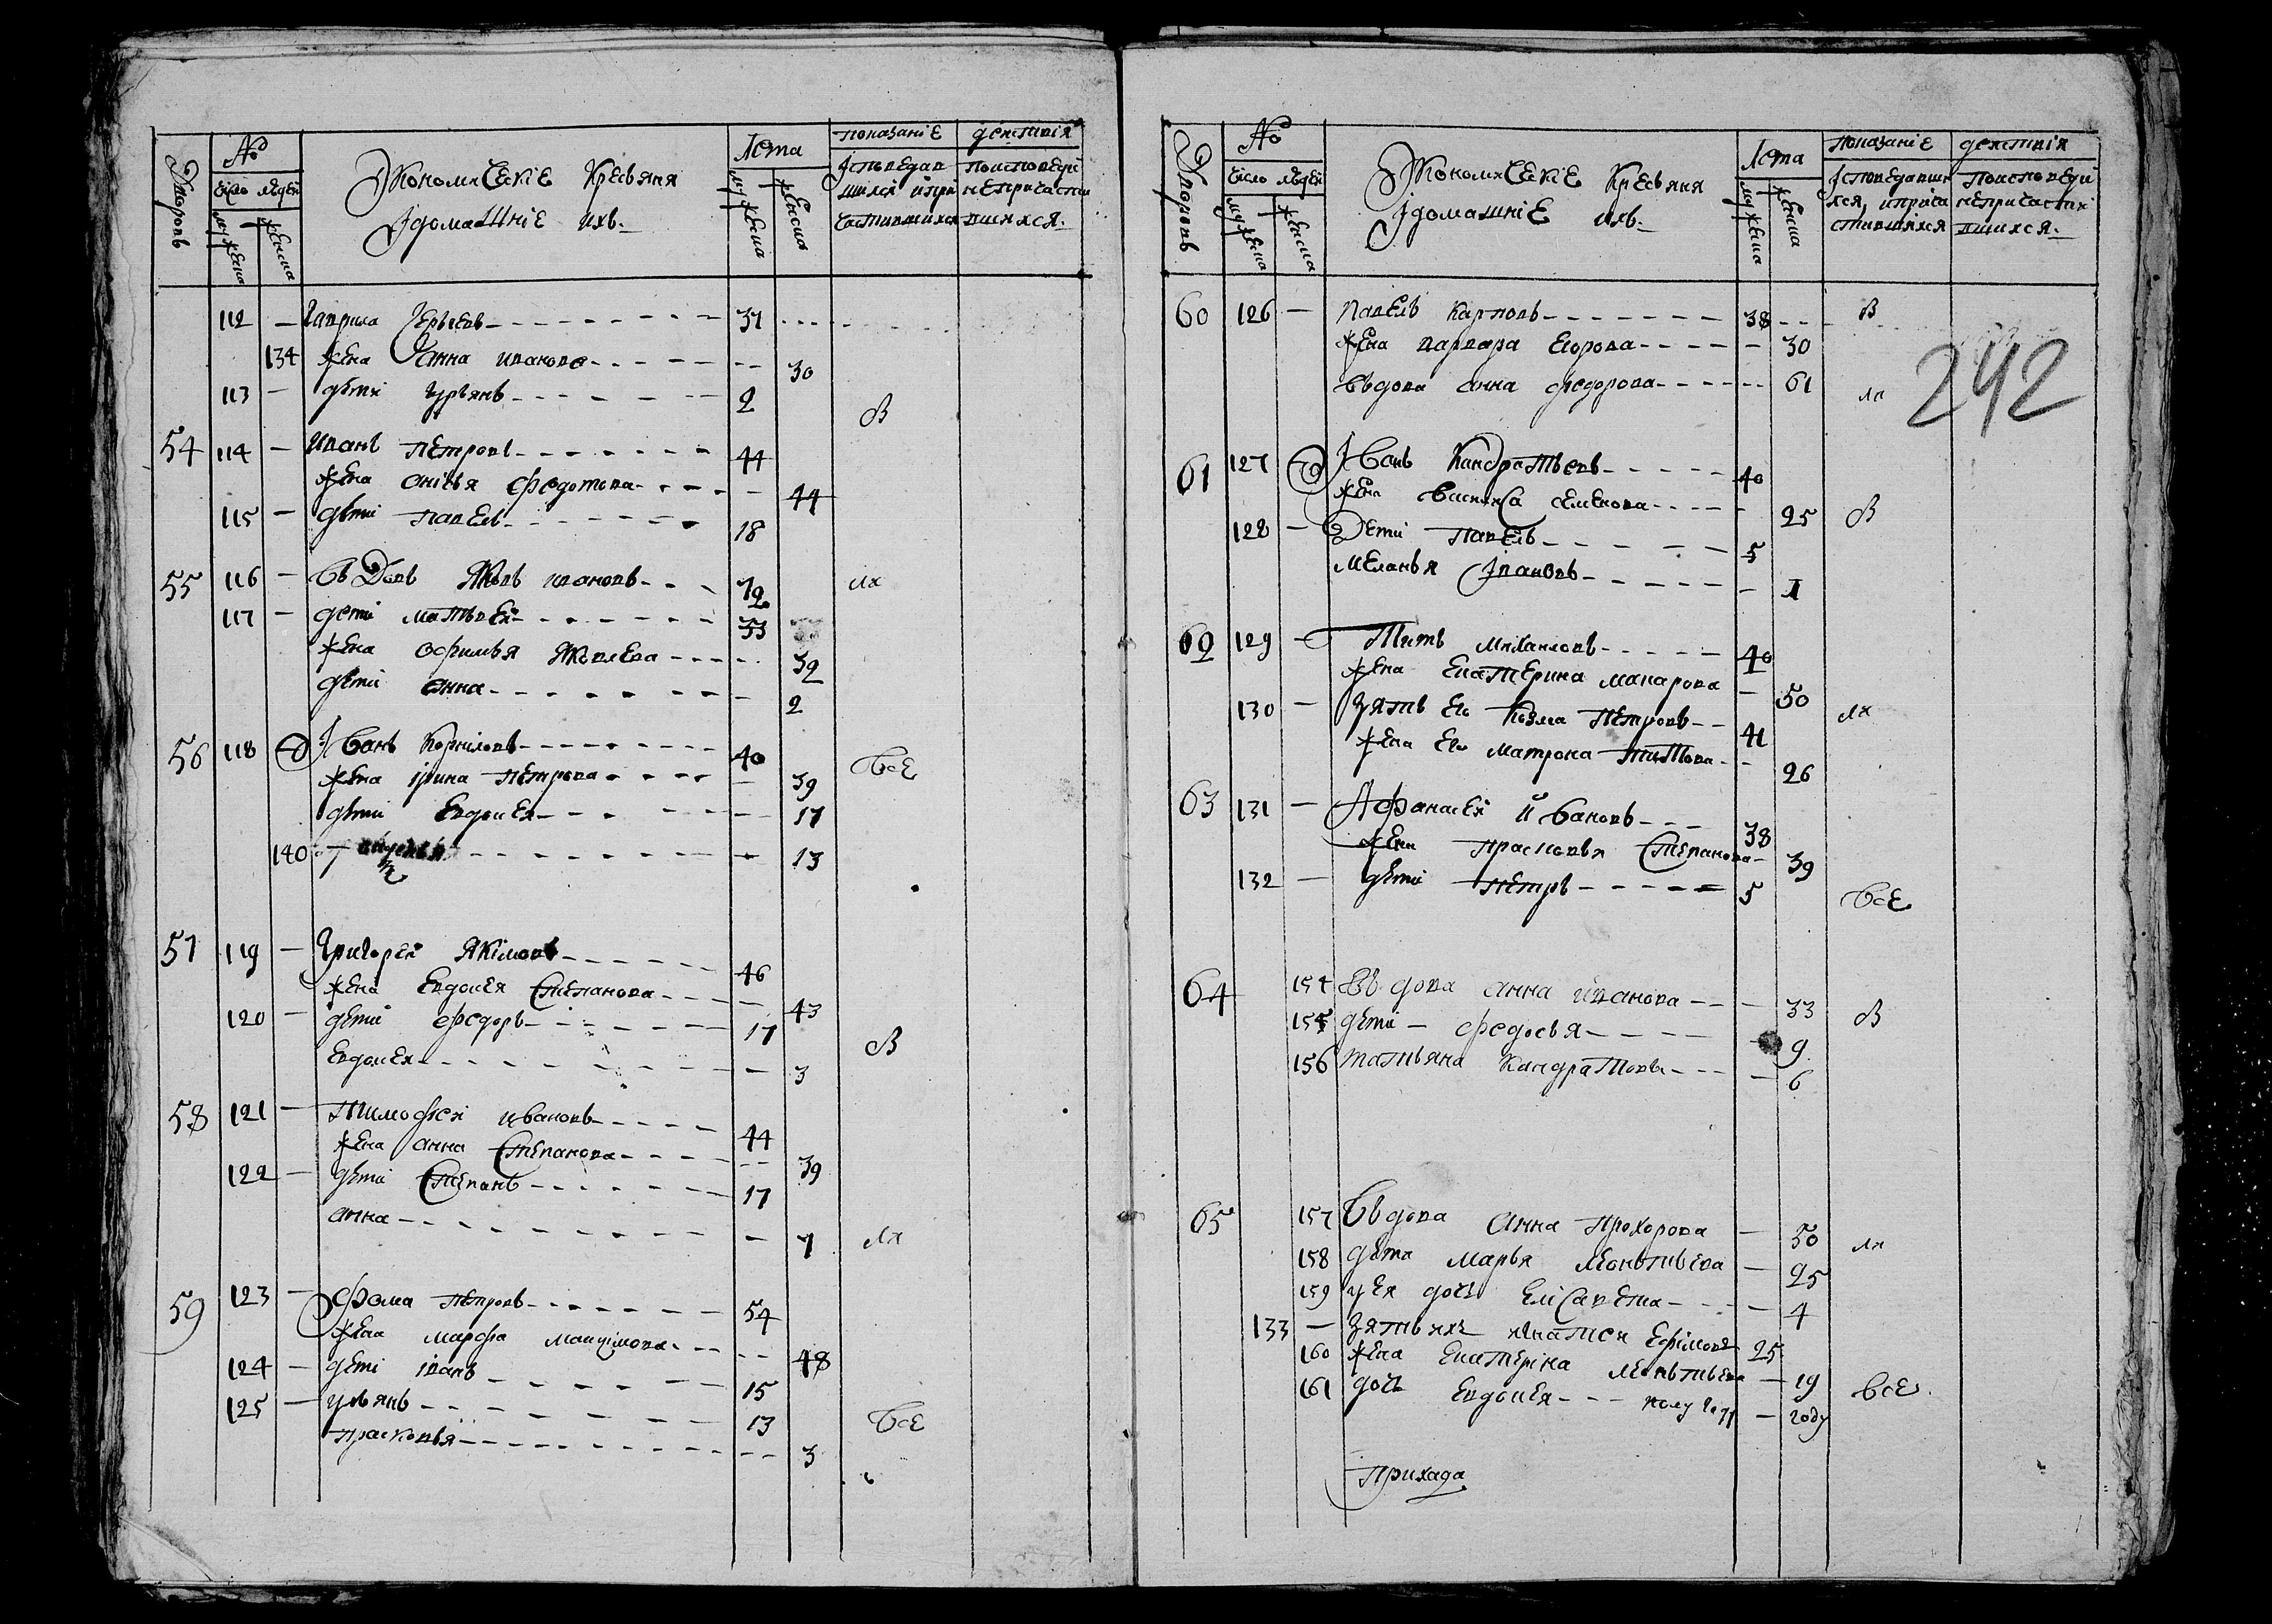 Дворовъ
№
Число людей
мужеска
женска
Экономическіе Крестьяня
Ідомашніе ихъ.
Лета
мужеска
женска
показаніе действія
Ісповедав шихся іпри частившихся
поисповеди непричасти вшихся.
112 — Гаврила 31
134 жена Анна иванова 30
113 — дети урьянъ 2 В
54 114 — иванъ петровъ 44
жена анісья федотова 44
115 — дети павелъ 18
55 116 — Вдовъ Яковъ ивановъ 72 ля
117 — дети матвей 33
жена офимья Яковлева 32
дети анна 2
56 118 Іванъ Корниловъ 40 Все
жена ірина петрова 39
дети Евдокея 17
140 13
57 119 — Григорей Якімовъ 46
жена Евдокея Степанова 43
120 — дети федоръ 17 В
Евдокея 3
58 121 — Тимофей ивановъ 44
жена анна Степанова 39
122 — дети Степанъ 17
анна 7 ля
59 123 — фома петровъ 54
жена марфа 48
124 — дети іванъ 15
125 — ульянъ 13 Все
прасковья 3
Дворовъ
№
число людей
мужеска
женска
Экономическіе Кресьяня
Ідомашніе ихъ.
Лета
мужеска
женска
показаніе действія
Ісповедавши хся, иприча стившихся
поисповеди непричасти вшихся.
242
60 126 — павелъ карповъ 38 В
жена варвара Егорова 30
Вдова анна федорова 61 ля
61 127 Іванъ Кандратьевъ 40
жена Василиса семенова 25 В
128 — Дети павелъ 5
меланья Іванова 1
62 129 — Титъ михаиловъ 40
жена Екатерина макарова 50
130 — зять Ево Козма петровъ 41 ля
жена Ево матрона титова 26
63 131 — Афанасей Ивановъ 38
жена прасковья Степанова 39
132 — дети петръ 5 Все
64 154 Вдова анна иванова 33 В
155 дети — федосья 9
156 татьяна Кандратова 6
65 157 Вдова анна прохорова — 50 ля
158 дети марья леонтьева — 25
159 уея дочь Елісавета — 4
133 — зять ихъ игнатей Ефімовъ 25
160 жена Екатеріна леонтьева — 19 Все
161 дочь Евдокея полу году — году
Прихода